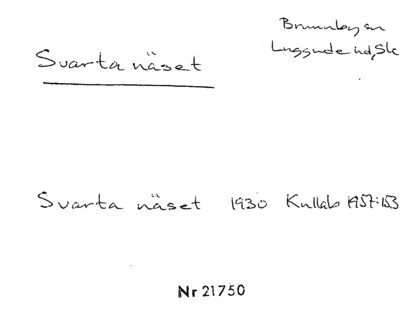 Brunnby sn
Luggude hd, Sk
Svarta näset
Svarta näset 1930 Kullab 1957:153
Nr 21750